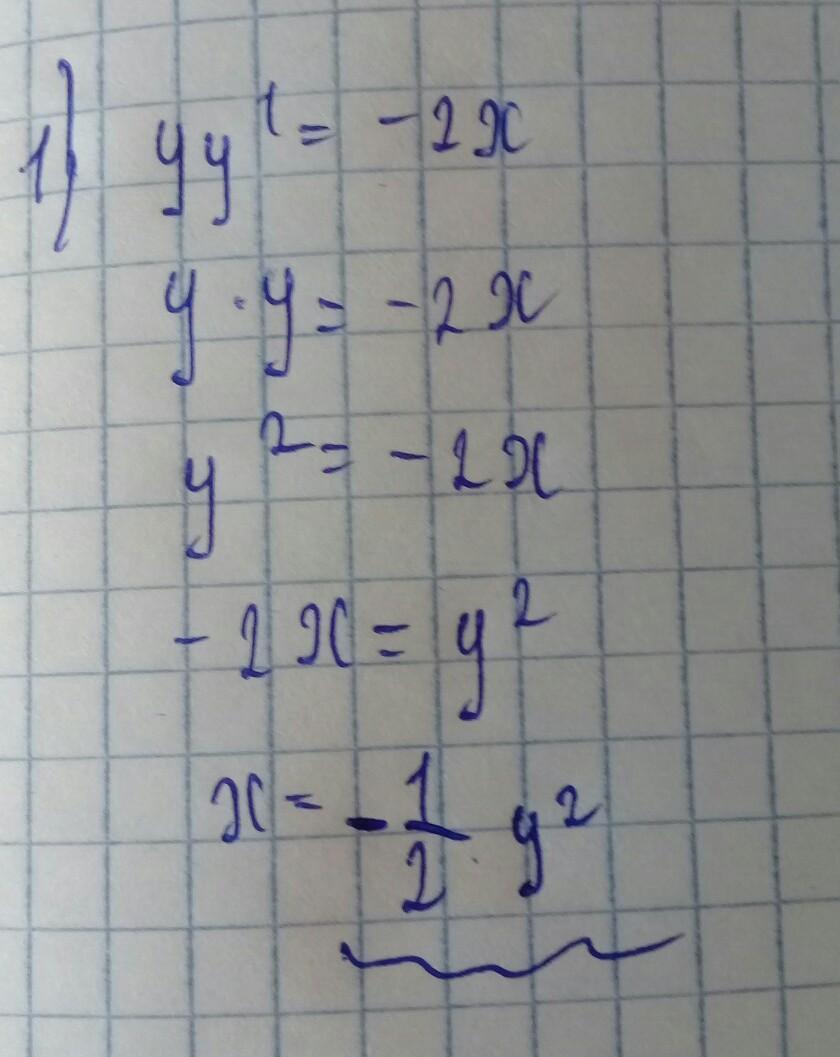 1) yy¹ = -2x
y · y = -2x
y² = -2x
-2x = y²
x = -1/2 y²